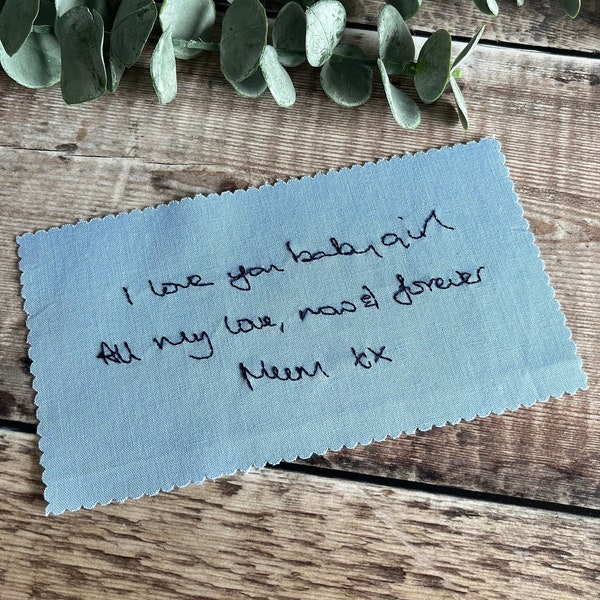 I love you baby girl
All my love, now & forever
Mum xx